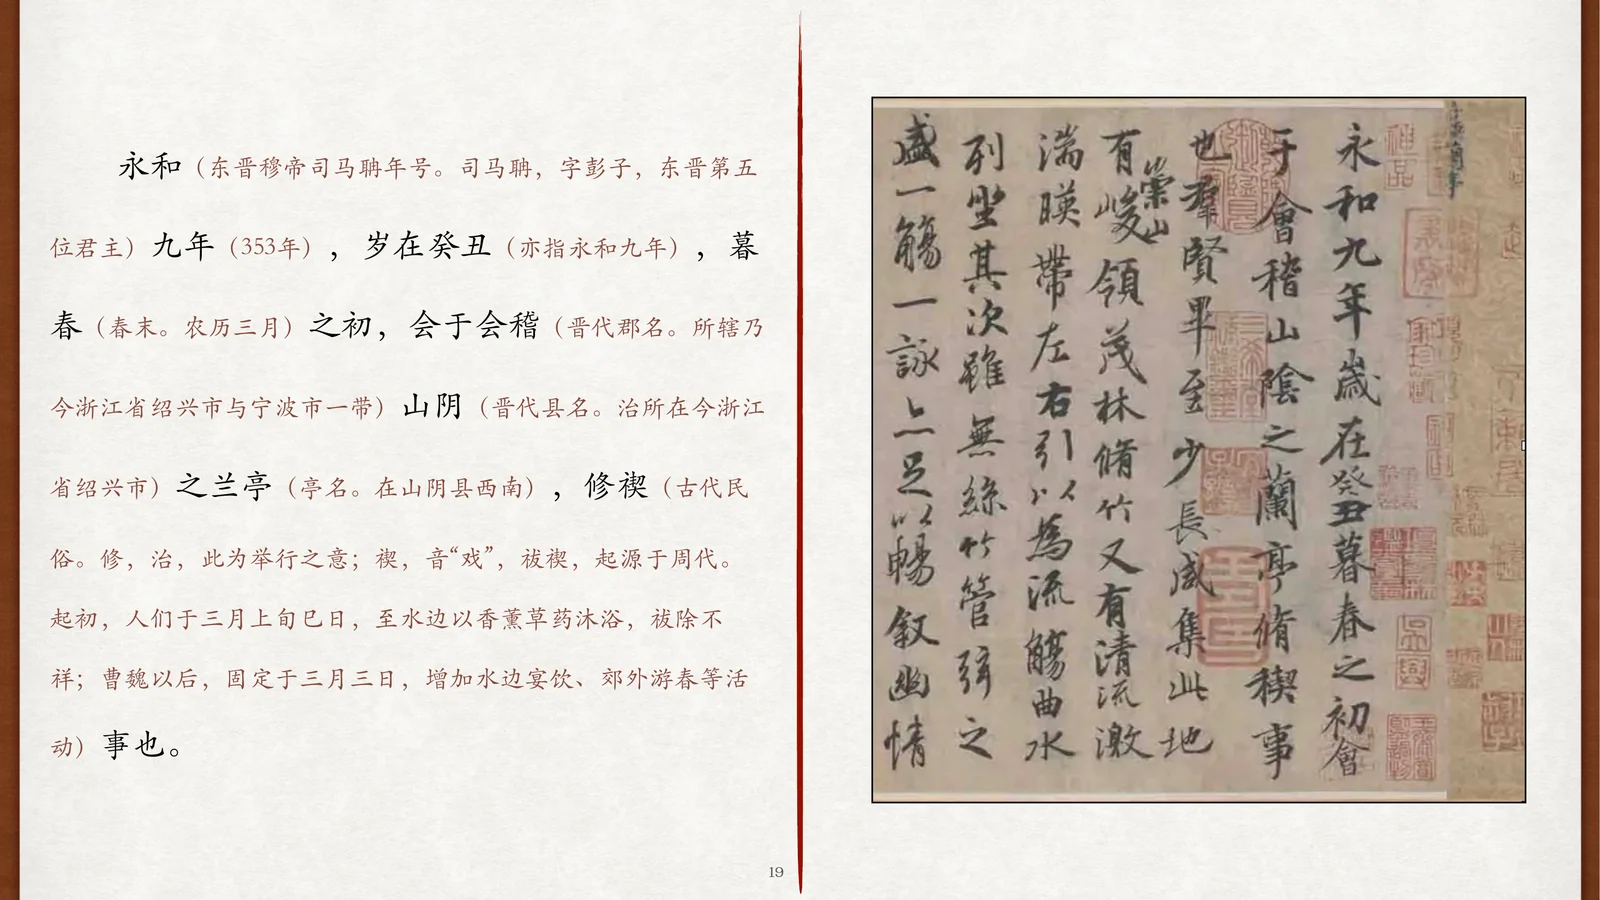 永和（东晋穆帝司马聃年号。司马聃，字彭子，东晋第五
位君主）九年（353年），岁在癸丑（亦指永和九年），暮
春（春末。农历三月）之初，会于会稽（晋代郡名。所辖乃
今浙江省绍兴市与宁波市一带）山阴（晋代县名。治所在今浙江
省绍兴市）之兰亭（亭名。在山阴县西南），修禊（古代民
俗。修，治，此为举行之意；禊，音“戏”，祓禊，起源于周代。
起初，人们于三月上旬巳日，至水边以香薰草药沐浴，祓除不
祥；曹魏以后，固定于三月三日，增加水边宴饮、郊外游春等活
动）事也。
19
永和九年歲在癸丑暮春之初會
于會稽山陰之蘭亭脩稧事
也羣賢畢至少長咸集此地
有崇山峻領茂林脩竹又有清流激
湍暎帶左右引以為流觴曲水
列坐其次雖無絲竹管弦之
盛一觴一詠亦足以暢敘幽情
神品